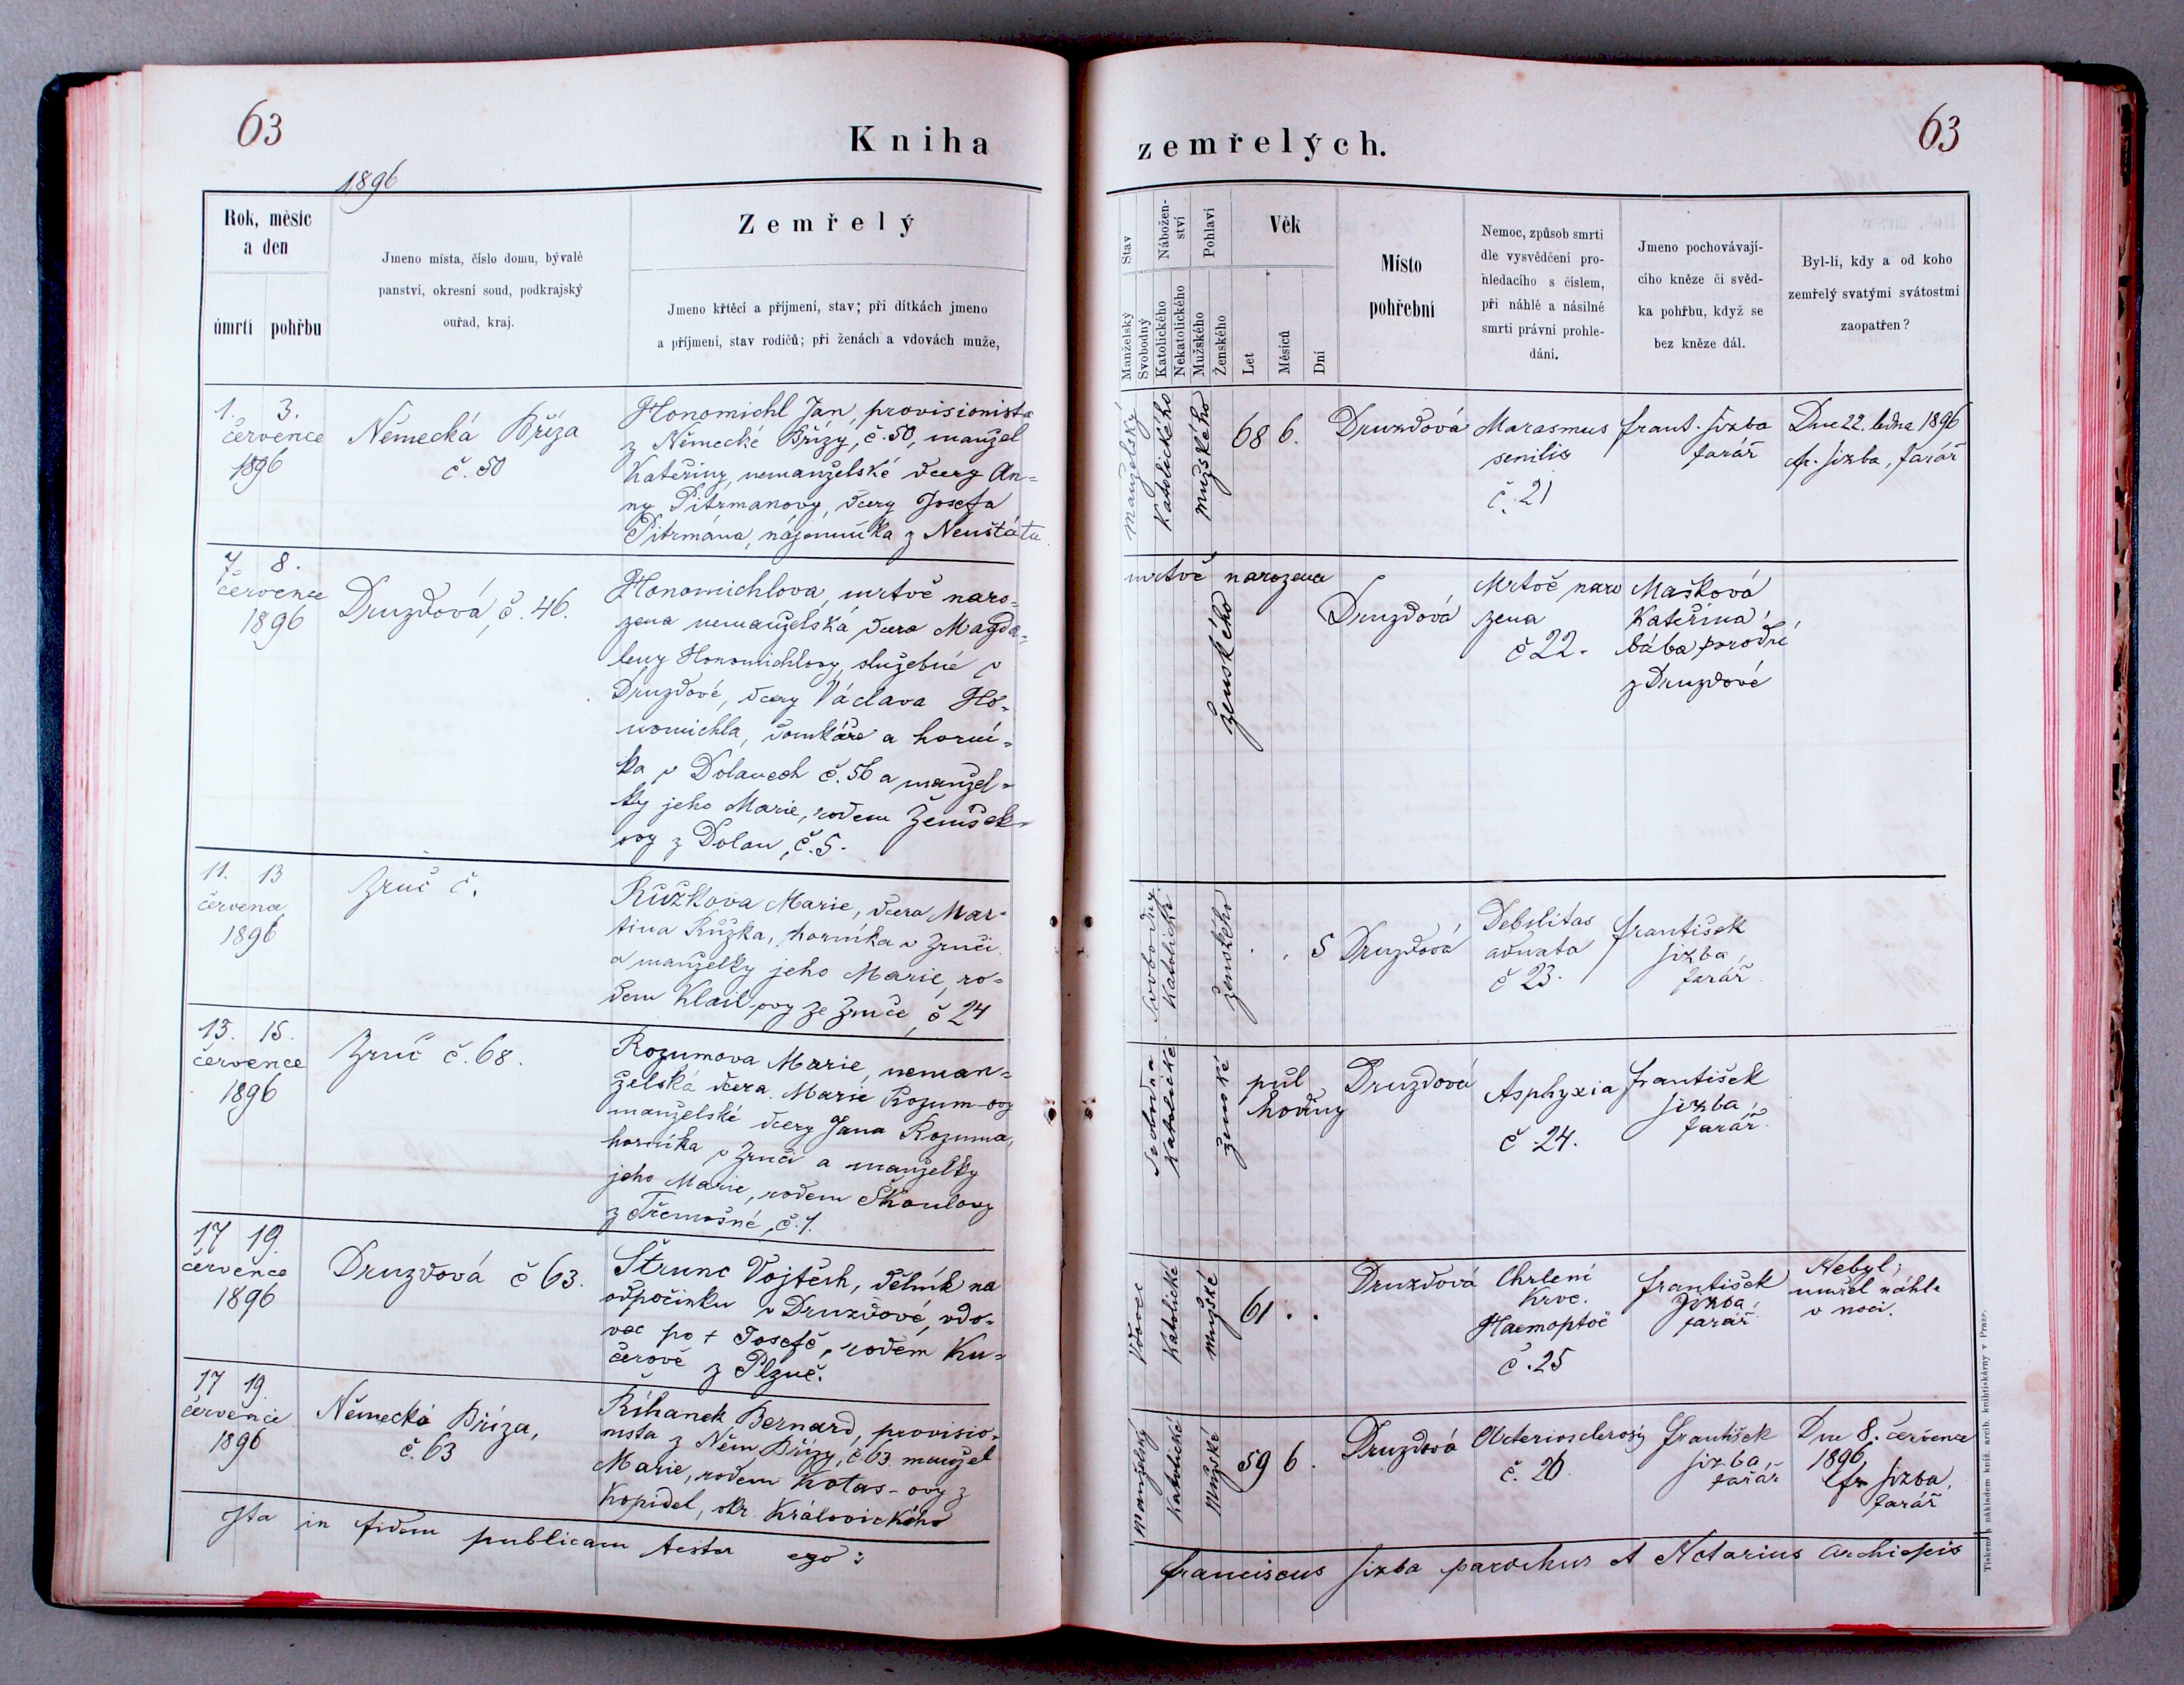 63
Kniha
1896
Rok, měsíc
a den
úmrtí pohřbu
Jmeno místa, číslo domu, bývalé
panství, okresní soud, podkrajský
ouřad, kraj.
Zemřelý
Jmeno křtěcí a příjmení, stav; při dítkách jmeno
a příjmení, stav rodičů; při ženách a vdovách muže,
1. 3.
července
1896
Německá Bříza
č. 50
Honomichl Jan, provisionista
z Německé Břízy, č. 50, manžel
Kateřiny, nemanželské dcery An=
ny Pitrmanovy, dcery Josefa
Pitrmána, nájemníka z Neuštátu
7. 8.
července
1896
Druzdová, č. 46.
Honomichlova, mrtvě naro=
zena nemanželská dcera Magda=
leny Honomichlovy, služebné v
Druzdové, dcery Václava Ho=
nomichla, domkáře a horní=
ka v Dolanech č. 56 a manžel=
ky jeho Marie, rodem Ženíšek-
ovy z Dolan, č. 5.
11. 13
července
1896
Zruč č.
Růžkova Marie, dcera Mar=
tina Růžka, horníka v Zruči
a manželky jeho Marie, ro=
dem Klail-ovy ze Zruče, č 24
13. 15.
července
1896
Zruč č. 68.
Rozumova Marie, neman=
želská dcera Marie Rozum-ovy
manželské dcery Jana Rozuma,
horníka v Zruči a manželky
jeho Marie, rodem Škoulovy
z Třemošné, č. 1.
17 19.
července
1896
Druzdová č 63.
Štrunc Vojtěch, dělník na
odpočinku v Druzdové, vdo=
vec po + Josefě, rodem Ku=
čerově z Plzně.
17 19.
července
1896
Německá Bříza,
č. 63
Říhanek Bernard, provisio=
nista z Něm Břízy, č 63 manžel
Marie, rodem Kotas-ovy z
Kopidel, okr. Královického
Ita in fidem publicam testor ego:
zemřelých.
63
Stav
Manželský
Svobodný
Nábožen-
ství
Katolického
Nekatolického
Pohlaví
Mužského
Ženského
Věk
Let
Měsíců
Dní
Místo
pohřební
Nemoc, způsob smrti
dle vysvědčení pro-
hledacího s číslem,
při náhlé a násilné
smrti právní prohle-
dání.
Jmeno pochovávají-
cího kněze či svěd-
ka pohřbu, když se
bez kněze dál.
Byl-li, kdy a od koho
zemřelý svatými svátostmi
zaopatřen?
Manželský
Katolického
Mužského
68 6.
Druzdová
Marasmus
senilis
č. 21
Frant. Sizba
farář
Dne 22. ledna 1896
Fr. Sizba, farář
mrtvě narozena
ženského
Druzdová
Mrtvě naro
zena
č 22.
Mašková
Kateřina
bába porodní
z Druzdové
Svobodný
Katolické
ženského
. . 5
Druzdová
Debilitas
adnata
č 23.
František
Sizba,
farář
Svobodna
Katolické
ženské
půl
hodiny
Druzdová
Asphyxia
č. 24.
František
Sizba,
farář.
Vdovec
Katolické
mužské
61 . .
Druzdová
Chrlení
krve.
Haemoptoë
č. 25
František
Sizba,
farář
Nebyl;
umřel náhle
v noci.
Manželský
Katolické
Mužské
59 6.
Druzdová
Arteriosclerosis
č. 26
František
Sizba,
farář
Dne 8. července
1896
Fr Sizba,
farář
Franciscus Sizba parochus et Notarius Archiepis
Tiskem a nákladem kníž. arcib. knihtiskárny v Praze.